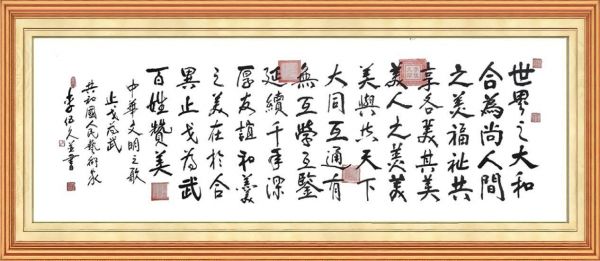 世界之大和
合為尚人間
之美福祉共
享各美其美
美人之美美
美與共天下
大同互通有
無互學互鑒
延續千年深
厚友誼和美
之美在於合
異止戈為武
百姓贊美
中華文明之歌
止戈為武
共和國人民藝術家
李伍久並書